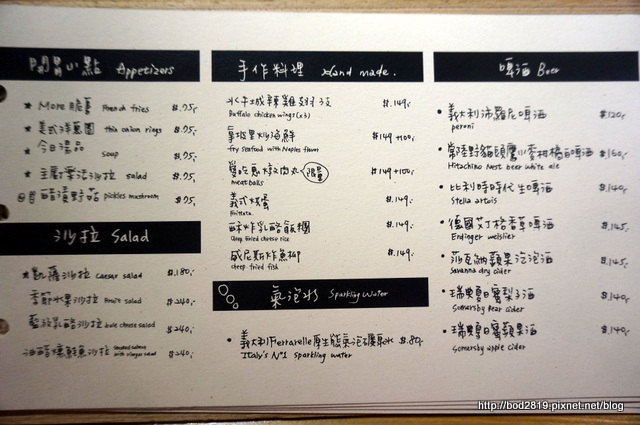 開胃小點 Appetizers
★ More脆薯 French fries $.75,
★ 美式洋蔥圈 thin onion rings $.75,
★ 今日湯品 soup $.75,
★ 主廚沙拉 salad $.75,
醋漬野菇 pickles mushroom $.75,
沙拉 Salad
★ 凱薩沙拉 Caesar salad $.180,
季節水果沙拉 fruit salad $.240,
藍紋乳酪沙拉 blue cheese salad $.240,
油醋燻鮭魚沙拉 Smoked salmon with vinegar salad $.240,
手作料理 Hand made.
水牛城辣雞翅 3支 $.149,
Buffalo chicken wings (x3)
拿坡里炒海鮮 $.149 +100,
fry seafood with Naples flavor
肉丸 限量 $.149 +100,
meat balls
義式烘蛋 $.149,
Frittata
酥炸乳酪飯糰 $.149,
Deep fried cheese rice
威尼斯炸魚柳 $.149,
deep fried fish
氣泡水 Sparkling Water
• 義大利Ferrarelle厚生態氣泡礦泉水 $.80,
Italy's N°1 sparkling water
啤酒 Beer
• 義大利沛羅尼啤酒 $120,
peroni
• 常陸野貓頭鷹小麥柑橘白啤酒 $160,
Hitachino Nest beer white ale
• 比利時時代生啤酒 $.140,
Stella artois
• 德國艾丁格香草啤酒 $.145,
Erdinger weisbier
• 沙瓦納蘋果氣泡酒 $.145,
Savanna dry cider
• 瑞典夏日蜜梨子酒 $.140,
Somersby Pear cider
• 瑞典夏日蜜蘋果酒 $.140,
Somersby apple cider
http://bod2819.pixnet.net/blog